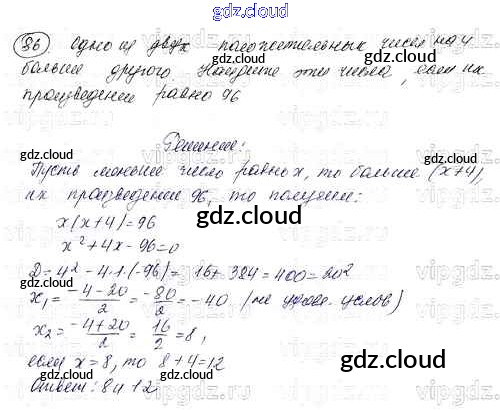 gdz.cloud
gdz.cloud
86 Одно из двух положительных чисел на 4
больше другого. Найдите эти числа, если их
произведение равно 96
gdz.cloud
Решение:
gdz.cloud
Пусть меньшее число равных x, то больше (x+4),
их произведение 96, то получаем:
gdz.cloud
x(x+4)=96
gdz.cloud
x²+4x-96=0
D=4²-4·1·(-96)= 16+384=400=20²
x₁= -4-20/2 = -80/2 = -40 (не удовл. услов)
gdz.cloud
x₂= -4+20/2 = 16/2 =8,
если x=8, то 8+4=12
gdz.cloud
Ответ: 8 и 12
gdz.cloud